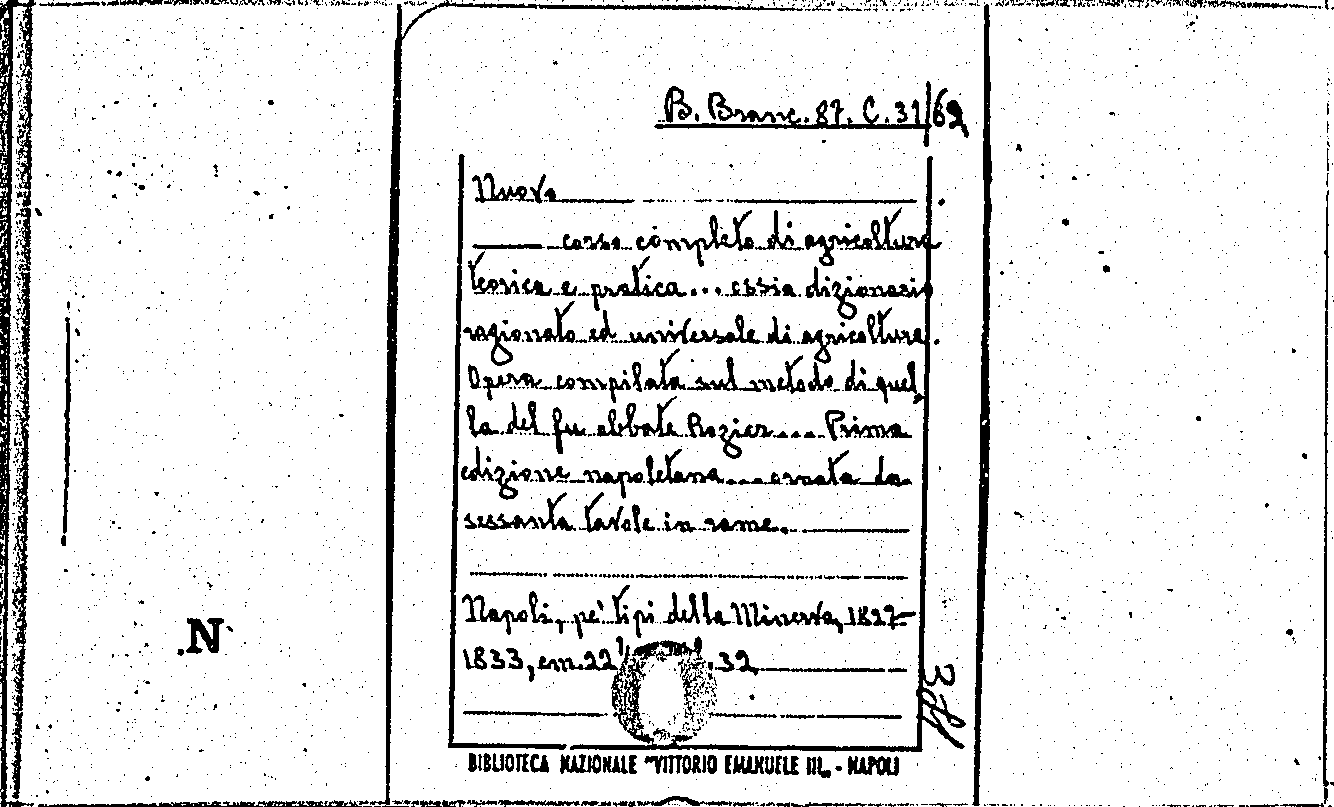 B. Branc. 87. C. 31/62
Nuovo
corso completo di agricoltura
teorica e pratica... ossia dizionario
ragionato ed universale di agricoltura.
Opera compilata sul metodo di quel
la del fu abbate Rozier.... Prima
edizione napoletana.... ornata da
sessanta tavole in rame.
Napoli, pe' tipi della Minerva, 1827-
1833, cm. 22 .32
BIBLIOTECA NAZIONALE "VITTORIO EMANUELE III„ - NAPOLI
.N